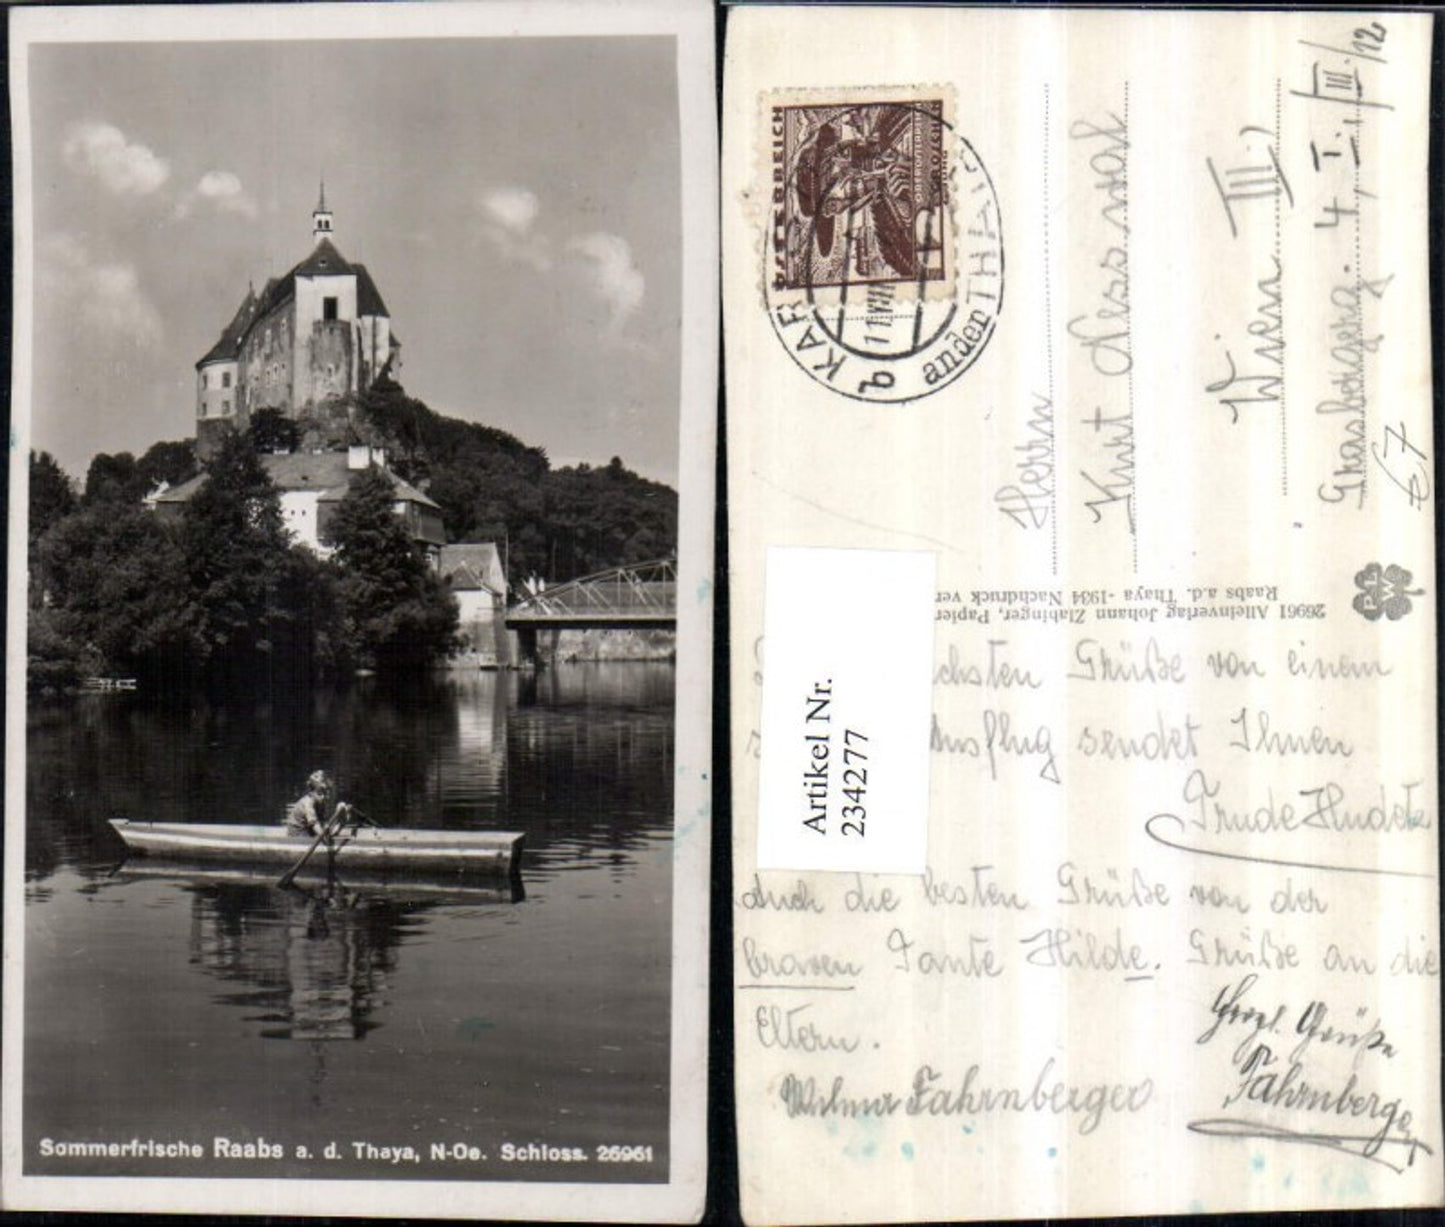 Sommerfrische Raabs a. d. Thaya, N-Oe. Schloss. 26961
ÖSTERREICH
KAR
an der THAYA
11.VIII
b
Herrn
Kurt Nessval
Wien III.)
Grasbergerg. 4, I., /III./12
€7
26961 Alleinverlag Johann Zlabinger, Papier
Raabs a.d. Thaya - 1934 Nachdruck ver
PAG
Artikel Nr.
234277
chsten Grüße von einem
Ausflug sendet Ihnen
Trude
Auch die besten Grüße von der
braven Tante Hilde. Grüße an die
Eltern.
Wilma Fahrnberger
Herzl. Grüße
Fahrnberger